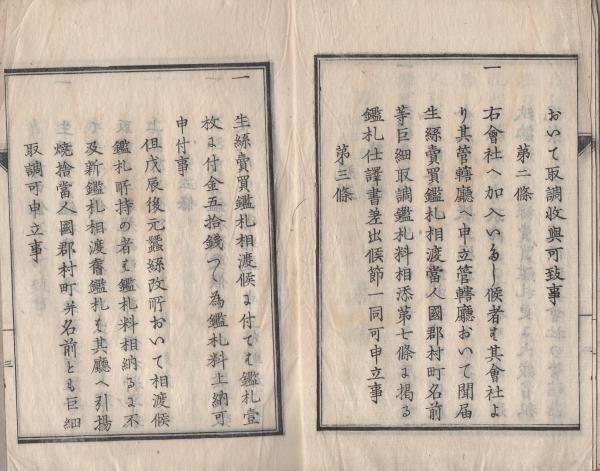 おいて取調收與可致事
第二條
一
右會社へ加入いたし候者ハ其會社よ
り其管轄廳へ申立管轄廳おいて聞届
生絲賣買鑑札相渡當人國郡村町名前
等巨細取調鑑札料相添第七條に掲る
鑑札仕譯書差出候節一同可申立事
第三條
一
生絲賣買鑑札相渡候に付てハ鑑札壹
枚に付金五拾錢つゝ為鑑札料上納可
申付事
但戊辰後元蠶絲改所おいて相渡候
鑑札所持の者ハ鑑札料相納るに不
及新鑑札相渡舊鑑札ハ其廳へ引揚
燒捨當人國郡村町并名前とも巨細
取調可申立事
三